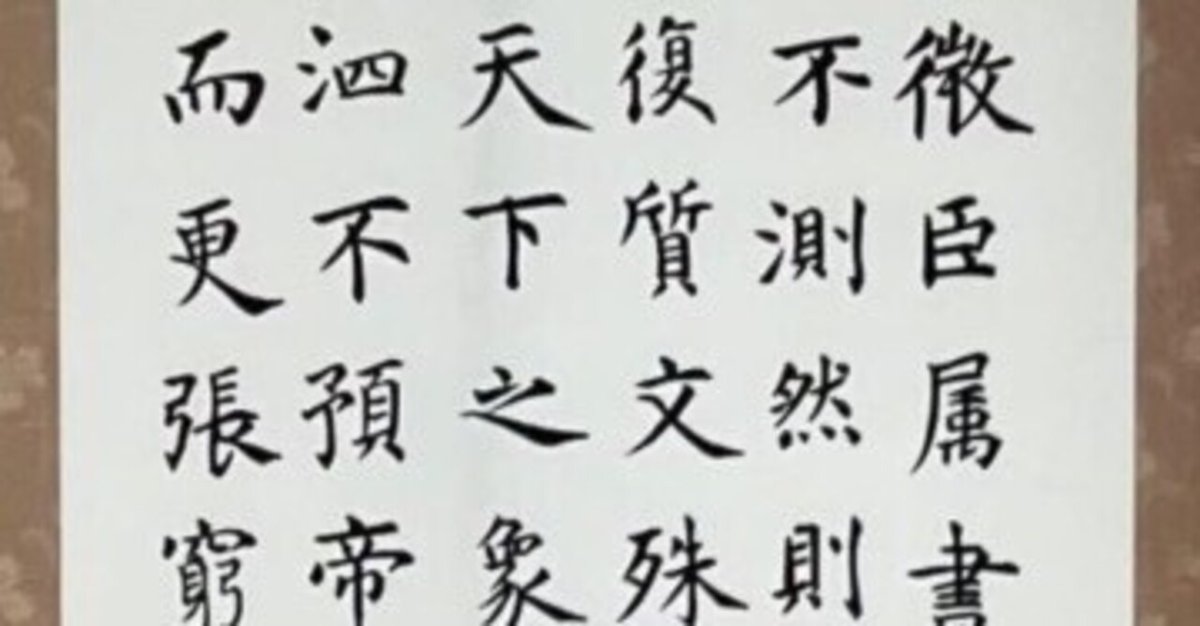 徴臣属書
不測然則
復質文殊
天下之象
泗不預帝
而更張窮